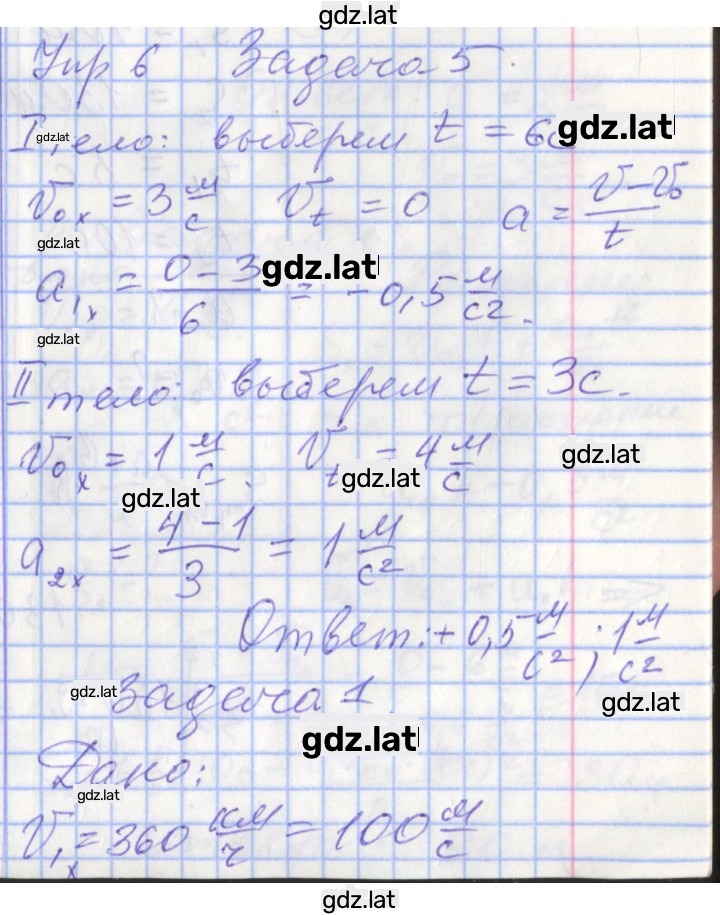 gdz.lat
Упр 6 Задача 5.
gdz.lat
I тело: выберем t = 6с gdz.lat
V₀ₓ = 3 м/с Vₜ = 0 a = (V-V₀)/t
gdz.lat
a₁ₓ = (0-3)/6 = -0,5 м/с².
gdz.lat
gdz.lat
II тело: выберем t = 3с.
V₀ₓ = 1 м/с. Vₜ = 4 м/с
gdz.lat
gdz.lat
gdz.lat
a₂ₓ = (4-1)/3 = 1 м/с²
Ответ: + 0,5 м/с²; 1 м/с²
gdz.lat
Задача 1
gdz.lat
gdz.lat
Дано:
gdz.lat
V₁ₓ = 360 км/ч = 100 м/с
gdz.lat